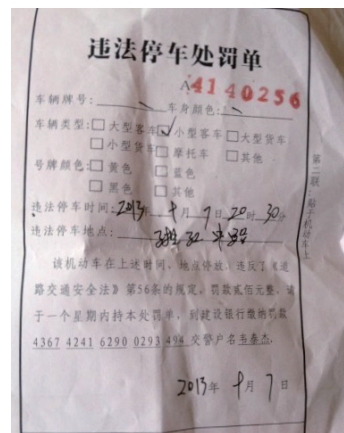 违法停车处罚单
A 4140256
车辆牌号: 车身颜色:
车辆类型:□大型客车☑小型客车□大型货车
□小型货车□摩托车□其他
号牌颜色:□黄色 □蓝色
□黑色 □其他
违法停车时间:2013年 十月 7日20时30分
违法停车地点:
该机动车在上述时间、地点停放,违反了《道
路交通安全法》第56条的规定,罚款贰佰元整,请
于一个星期内持本处罚单,到建设银行缴纳罚款
4367 4241 6290 0293 494 交警户名韦泰杰.
2013年 十月 7日
第二联:贴于机动车上